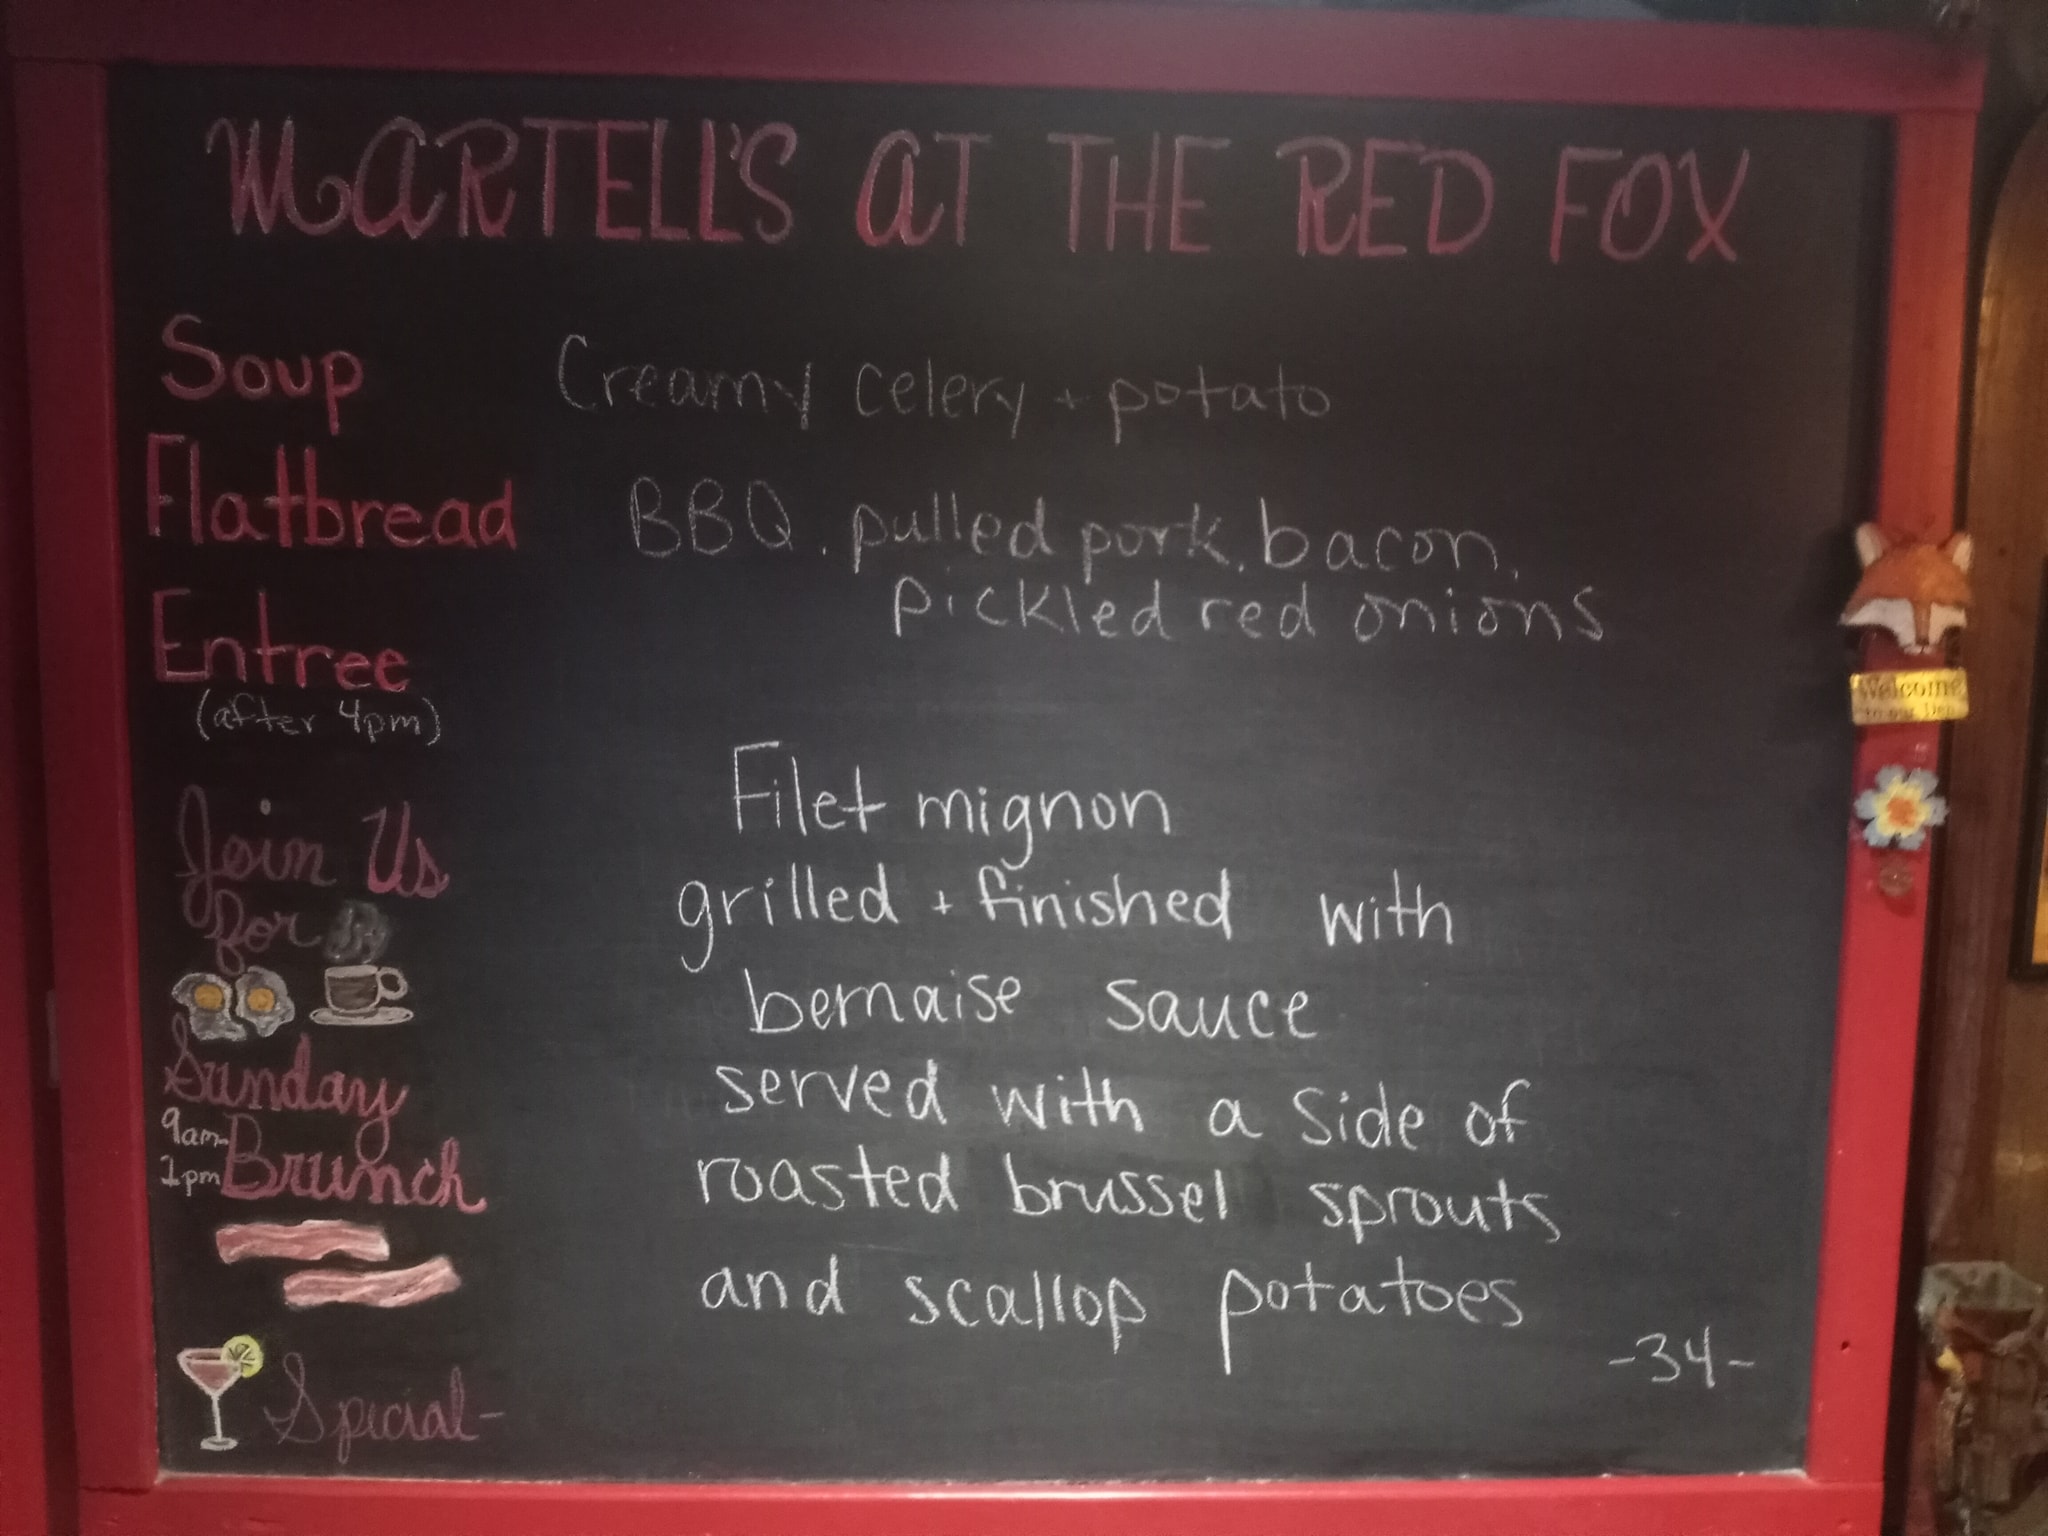 MARTELL'S AT THE RED FOX
Soup Creamy celery + potato
Flatbread BBQ. pulled pork, bacon,
pickled red onions
Entree
(after 4pm)
Filet mignon
grilled + finished with
bernaise sauce
served with a side of
roasted brussel sprouts
and scallop potatoes
-34-
Join Us
for
Sunday
9am-
1pm Brunch
Special-
Welcome
to our Den